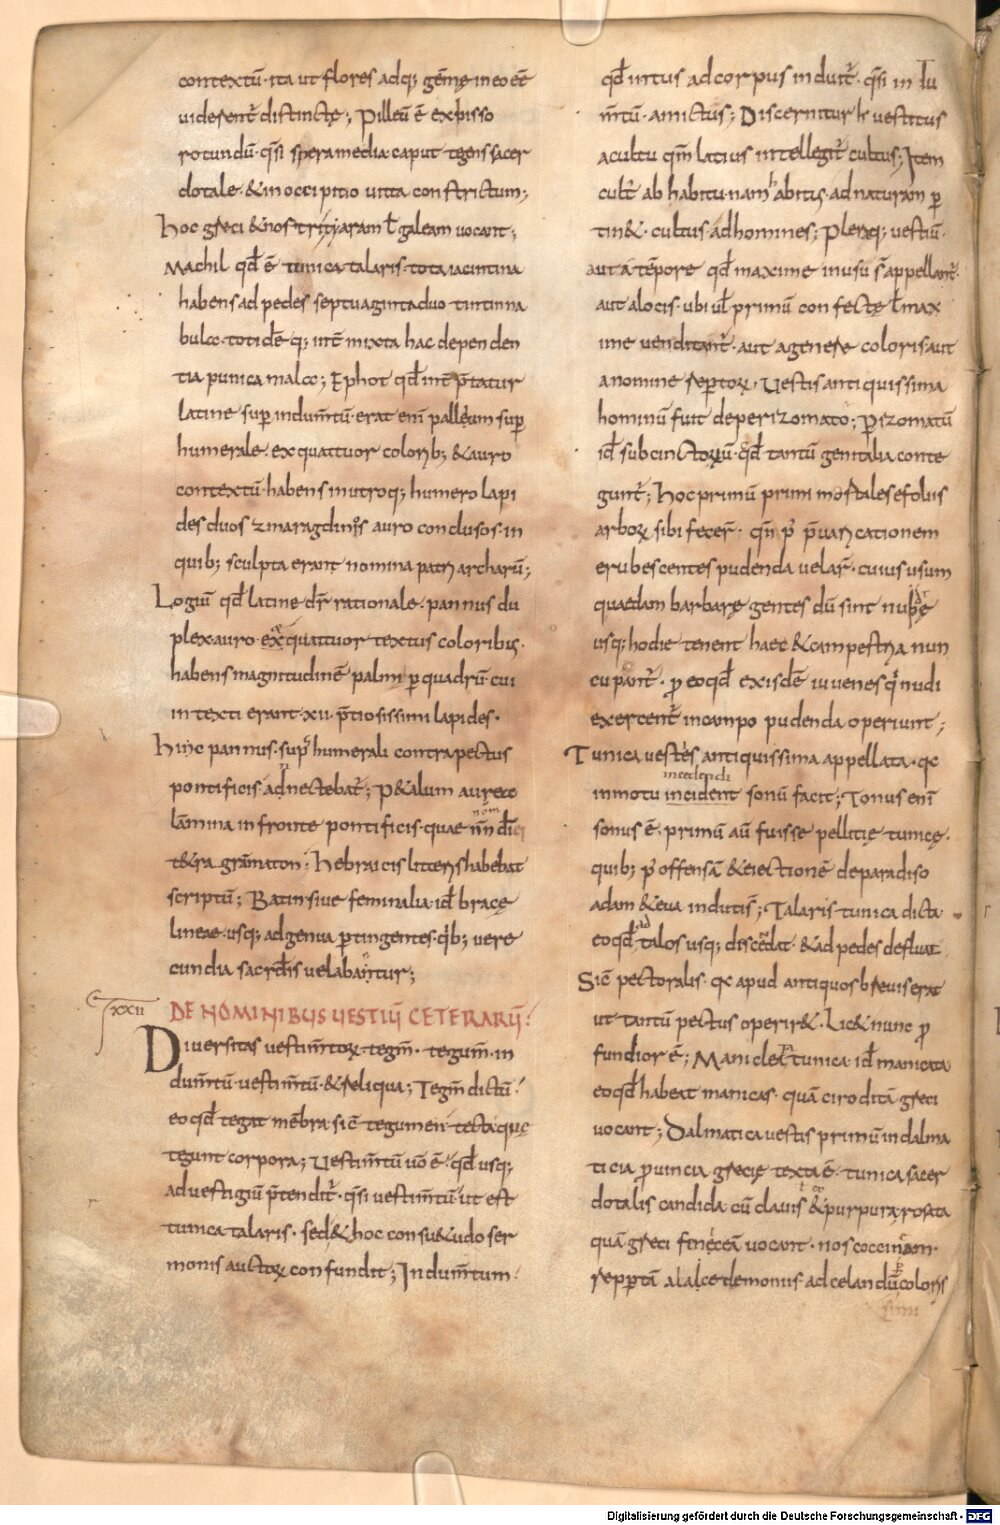 contextū· ita ut flores adq; gēmę in eo eē
uiderent᷑ distinctę; Pilleū ē ex bisso
rotundū· q̄si spera media caput tegens sacer
dotale· & in occipitio uitta constrictum;
Hoc greci & nostri tyaram ł galeam uocant;
Machil qd̄ ē tunica talaris· tota iacintina
habens ad pedes septuaginta duo tintinna
bula· totidēq; int̄ mixta hac dependen
tia punica mala; Ephot qd̄ int̄ p̄tatur
latine sup indumt̄ū· erat enī palleum sup
humerale· ex quattuor colorib; & auro
contextū· habens in utroq; humero lapi
des duos zmaragdinos auro conclusos· in
quib; sculpta erant nomina patriarcharū;
Logiū qd̄ latine dr̄ rationale· pannus du
plex auro· ex quattuor textus coloribus·
habens magnitudinē palmi p quadrū· cui
intexti erant· xii· p̄tiosissimi lapides·
Hinc pannus· sup humerali contra pectus
pontificis adnectebat᷑; P&alum aurea
lāmina in fronte pontificis· quae nn̄ dei
t&ra grāmaton· hebraicis litteris habebat
scriptū; Batin siue feminalia· id̄ bracę
lineae usq; ad genua ptingentes· qb; uere
cundia sacrd̄is uelabantur;
xxii DE NOMINIBUS UESTIŪ CETERARŪ:
Diuersitas uestimt̄orꝝ· tegm̄· tegum̄· in
dumt̄ū· uestimt̄ū· & reliqua; Tegm̄ dictū·
eo qd̄ tegat mēbra· sic̄ tegumen tecta que
tegunt corpora; Uestimt̄ū uō ē· qd̄ usq;
ad uestigiū p̄tendit᷑· q̄si uestimt̄ū· ut est
tunica talaris· sed & hoc consu&udo ser
monis auctorꝝ confundit; Indumt̄um·
qd̄ intus ad corpus induit᷑· q̄si in Iu
mt̄ū· amictus; Discernitur & uestitus
a cultu qm̄ latius intellegit᷑ cultus; Item
cult᷑ ab habitu· nam habitus ad naturam p
tin&· cultus ad homines; Pleriq; uestiū·
aut a tēpore qd̄ maxime in usu s̄ appellant᷑·
aut a locis· ubi ul̄ primū confectę ł max
ime uenditant᷑· aut a genere coloris aut
a nomine reptorꝝ· Uestis antiquissima
hominū fuit de perizomato; Pizomatū
id̄ subcinctoriū· qd̄ tantū genitalia conte
gunt᷑; Hoc primū primi mortales e foliis
arborꝝ sibi fecer̄· qn̄ p᷑ p̄uaricationem
erubescentes pudenda uelar̄· cuius usum
quaedam barbarę gentes dū sint nudę
usq; hodie tenent haec & campestria nun
cupant᷑· p eo qd̄ exisdē iuuenes q nudi
exercent᷑ in campo pudenda operiunt;
Tunica uestes antiquissima appellata· qa
in motu incident sonū facit; Tonus enī
sonus ē· primū aū fuisse pellitię tunicę·
quib; p᷑ offensā & eiectionē de paradiso
adam & eua induti s̄; Talaris tunica dicta
eo qd̄ ad talos usq; discedat· & ad pedes defluat
Sic̄ pectoralis· qa apud antiquos breuis erat
ut tantū pectus operir&· lic& nunc p
fundior ē; Manicleata tunica· id̄ manicata
eo qd̄ habeat manicas· quā ciroditā greci
uocant; Dalmatica uestis primū in dalma
ticia puincia grecię texta ē· tunica sacer
dotalis candida cū clauis & purpura; rosata
quā greci fenęceā uocant· nos coccineam·
reppertā a lalcedemonus· ad celandū coloris